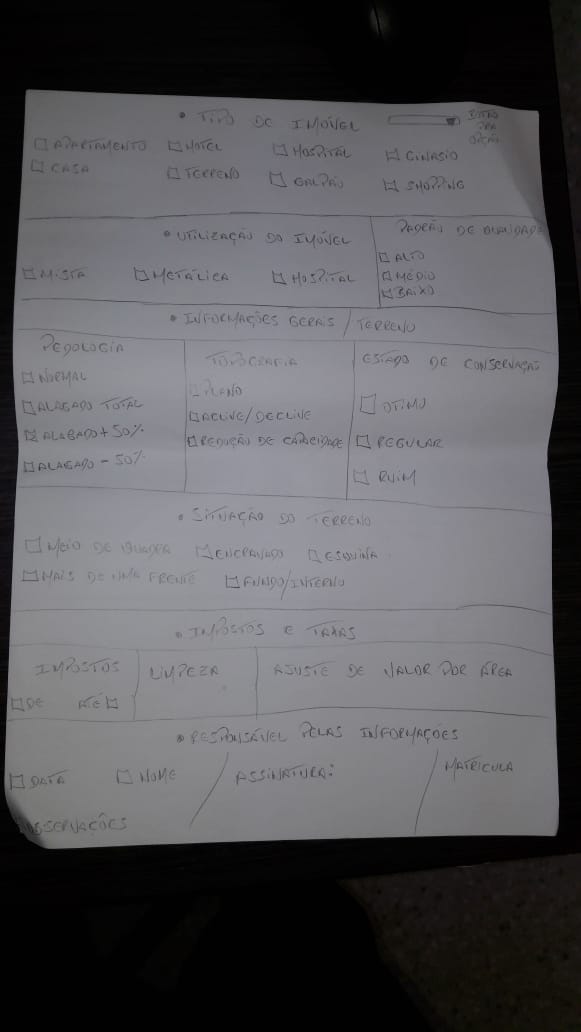 • TIPO DE IMÓVEL
BOTÃO PRA OPÇÃO
APARTAMENTO HOTEL HOSPITAL GINASIO
CASA TERRENO GALPÃO SHOPPING
• UTILIZAÇÃO DO IMÓVEL
MISTA METÁLICA HOSPITAL
PADRÃO DE QUALIDADE
ALTO
MÉDIO
BAIXO
• INFORMAÇÕES GERAIS / TERRENO
PEDOLOGIA
NORMAL
ALAGADO TOTAL
ALAGADO + 50%
ALAGADO - 50%
TOPOGRAFIA
PLANO
ACLIVE/DECLIVE
REDUÇÃO DE CAPACIDADE
ESTADO DE CONSERVAÇÃO
OTIMO
REGULAR
RUIM
• SITUAÇÃO DO TERRENO
MEIO DE QUADRA ENCRAVADO ESQUINA
MAIS DE UMA FRENTE FUNDO/INTERNO
• IMPOSTOS E TAXAS
IMPOSTOS LIMPEZA AJUSTE DE VALOR POR ÁREA
DE ATÉ
• RESPONSÁVEL PELAS INFORMAÇÕES
DATA NOME ASSINATURA: MATRICULA
OBSERVAÇÕES